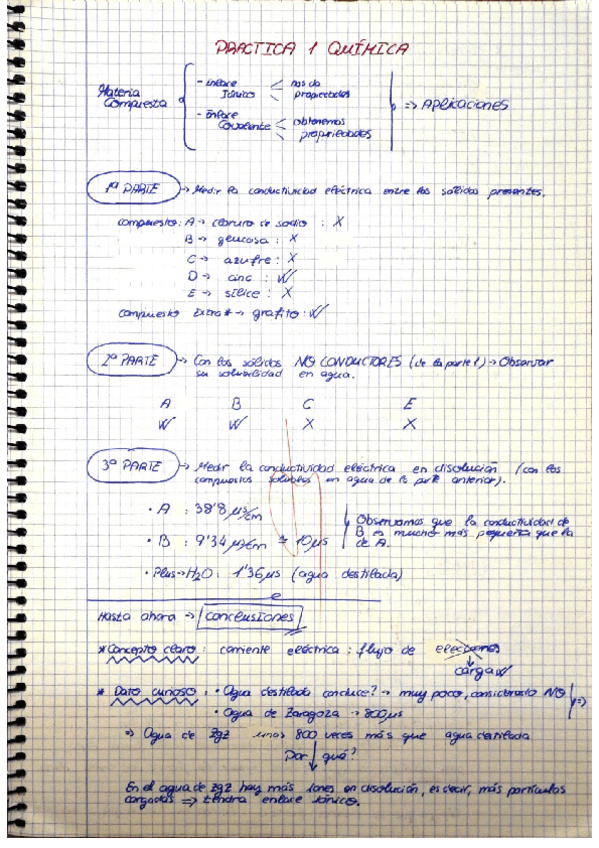 PRACTICA 1 QUÍMICA
Materia Compuesta
- Enlace Iónico
nos da propiedades
- Enlace Covalente
obtenemos propiedades
=> Aplicaciones
1ª PARTE → Medir la conductividad eléctrica entre los sólidos presentes.
compuesto: A → cloruro de sodio : X
B → glucosa : X
C → azufre : X
D → cinc : W
E → sílice : X
compuesto Extra* → grafito : W
2ª PARTE → Con los sólidos NO CONDUCTORES (de la parte 1) → Observar
su solubilidad en agua.
A B C E
W W X X
3ª PARTE → Medir la conductividad eléctrica en disolución (con los
compuestos solubles en agua de la parte anterior).
• A : 38'8 μS/cm
• B : 9'34 μS/cm ≈ 10 μS
Observamos que la conductividad de
B es mucho más pequeña que la
de A.
• Plus → H₂O : 1'36 μS (agua destilada)
Hasta ahora → conclusiones
* Concepto claro : corriente eléctrica : flujo de electrones
carga
* Dato curioso : • Agua destilada conduce? → muy poco, considerarlo NO =>
• Agua de Zaragoza → 800 μS
=> Agua de Zgz unas 800 veces más que agua destilada
Por qué?
En el agua de zgz hay más iones en disolución, es decir, más partículas
cargadas => tendrá enlace iónico.